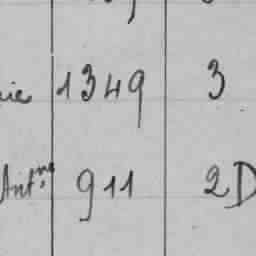 1349 3
Ant.ne 911 2D